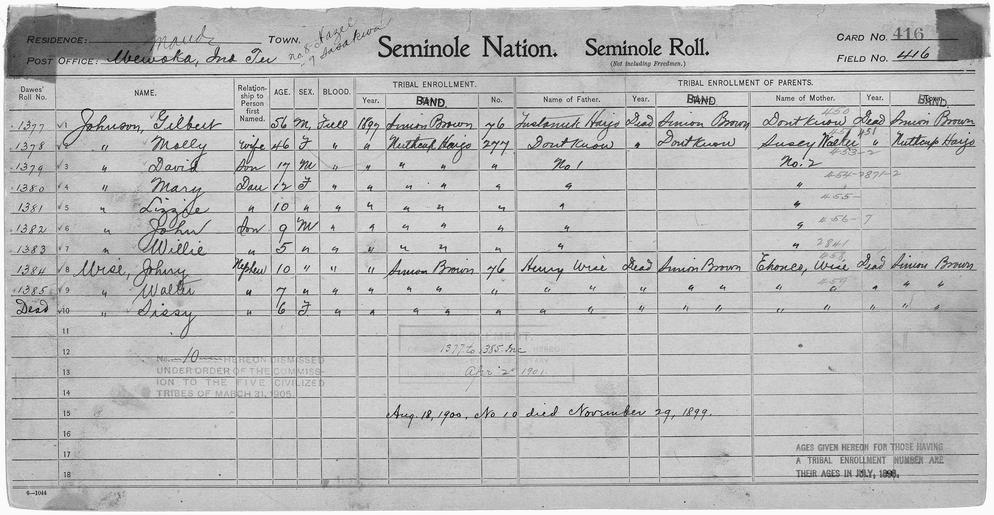 RESIDENCE: Maud TOWN. no. 8 Hazel
POST OFFICE: Wewoka, Ind Ter - 9 Sasakwa
Seminole Nation. Seminole Roll.
(Not including Freedmen.)
CARD NO. 416
FIELD NO. 416
Dawes' Roll No. NAME. Relationship to Person first Named. AGE. SEX. BLOOD. TRIBAL ENROLLMENT. TRIBAL ENROLLMENT OF PARENTS.
Year. BAND. No. Name of Father. Year. BAND. Name of Mother. Year. BAND.
1377 1 Johnson, Gilbert 56 M, Full 1897 Simion Brown 76 Dead Simion Brown Dont Know 450 Dead Simion Brown
1378 2 " Molly Wife 46 F " " Nuthcup Harjo 277 Dont Know " Dont Know Susey Walker 451 " Nuthcup Harjo
1379 3 " David Son 17 M " " " " " No 1 No. 2 453-2
1380 4 " Mary Dau 12 F " " " " " " " 454-2871-2
1381 5 " Lizzie " 10 " " " " " " " " 455-
1382 6 " John Son 9 M " " " " " " " 456-7
1383 7 " Willie " 5 " " " " " " " " 2841
1384 8 Wise, Johny Nephew 10 " " " Simion Brown 76 Henry Wise Dead Simion Brown Wise Dead Simion Brown
1385 9 " Walter " 7 " " " " " " " " " " " " 459 " " "
Dead 10 " Sissy " 6 F " " " " " " " " " " " " " " "
11
12 1377 to 1385 Inc
No. 10 HEREON DISMISSED
UNDER ORDER OF THE COMMIS-
13 Apr 2 1901.
SION TO THE FIVE CIVILIZED
TRIBES OF MARCH 31, 1905.
14
15 Aug. 18, 1900. No 10 died November 29, 1899.
16
17
18
AGES GIVEN HEREON FOR THOSE HAVING
A TRIBAL ENROLLMENT NUMBER ARE
THEIR AGES IN JULY, 1898.
6-1044